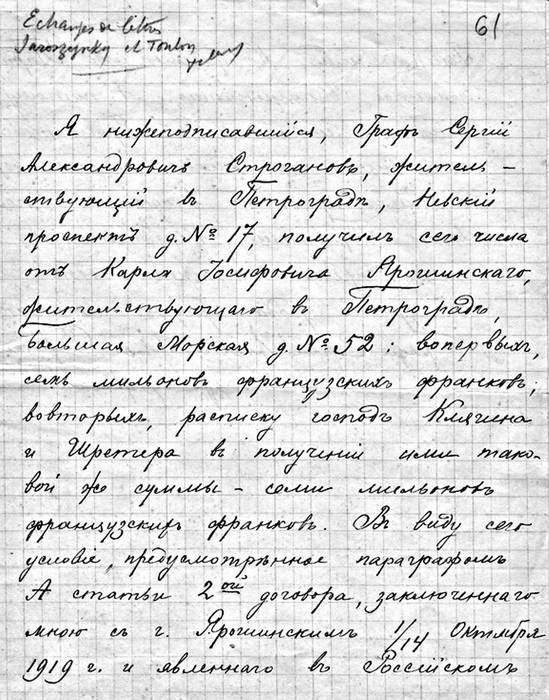 Echanges de lettres
Jaroszynky et Toulon
61
Я нижеподписавшійся, Графъ Сергій
Александровичъ Строгановъ, житель-
ствующій въ Петроградѣ, Невскій
проспектъ д. № 17, получилъ сего числа
отъ Карла Іосифовича Ярошинскаго,
жительствующаго въ Петроградѣ,
Большая Морская д. № 52: вопервыхъ,
семь мильоновъ французскихъ франковъ;
вовторыхъ, расписку господъ Клягина
и Шретера въ полученіи ими тако-
вой же суммы - семи мильоновъ
французскихъ франковъ. Въ виду сего
условіе, предусмотрѣнное параграфомъ
А статьи 2ой договора, заключеннаго
мною съ г. Ярошинскимъ 1/14 Октября
1919 г. и явленнаго въ Россійскомъ